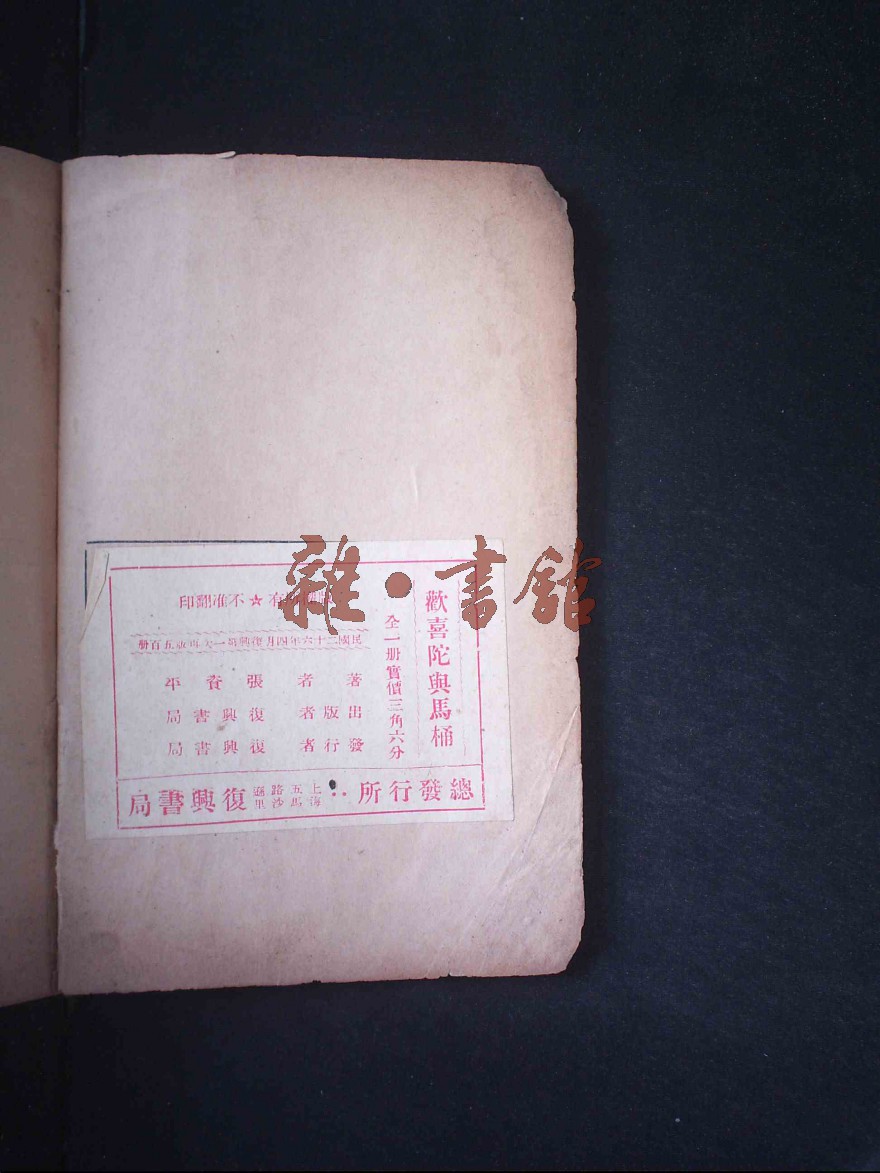 雜·書館
歡喜陀與馬桶
全一册實價三角六分
有☆不准翻印
民國二十六年四月復興第一次再版五百册
著者 張資平
出版者 復興書局
發行者 復興書局
總發行所：上海五馬路沙遜里復興書局